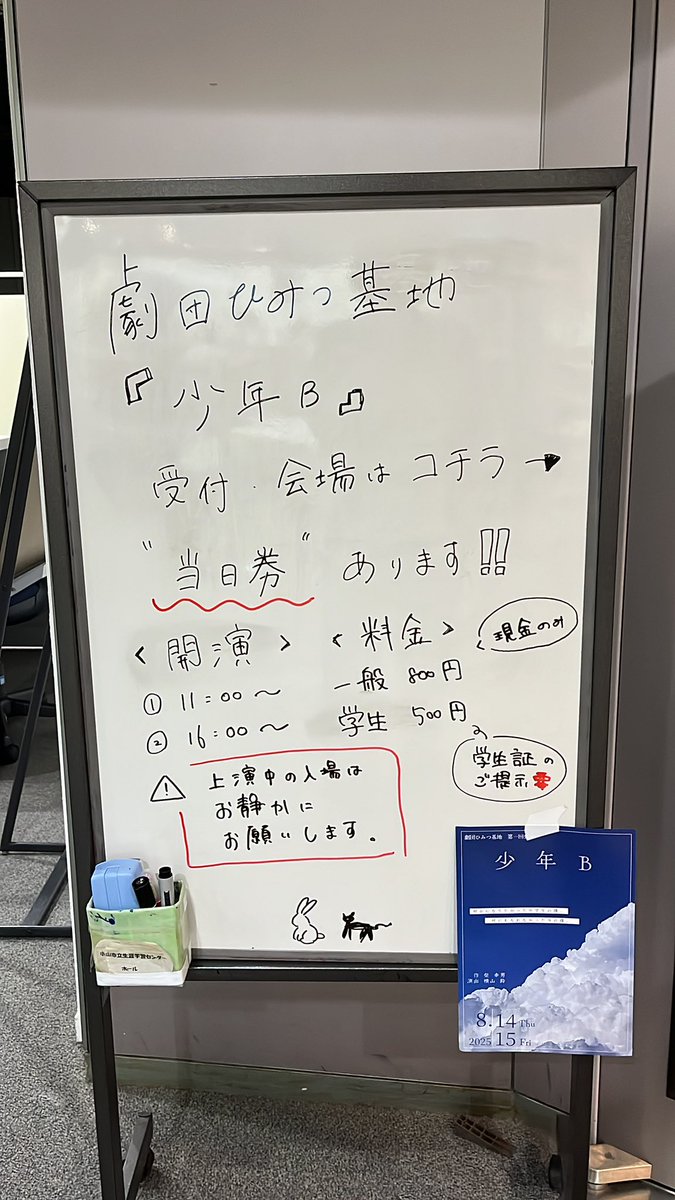 劇団ひみつ基地
『少年B』
受付・会場はコチラ→
"当日券" あります!!
<開演>
① 11:00〜
② 16:00〜
<料金>
現金のみ
一般 800円
学生 500円
学生証の
ご提示
上演中の入場は
お静かに
お願いします。
小山市立生涯学習センター
ホール
劇団ひみつ基地 第一回
少年B
8.14 Thu
2025 15 Fri